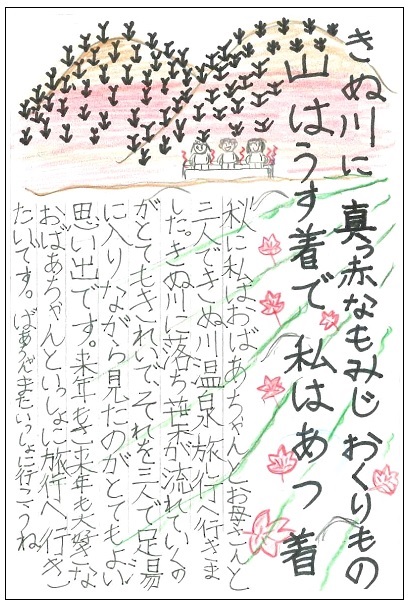 きぬ川に 真っ赤なもみじ おくりもの
山はうす着で 私はあつ着
秋に私はおばあちゃんとお母さんと
三人できぬ川温泉旅行へ行きま
した。きぬ川に落ち葉が流れていくの
がとてもきれいで、それを三人で足湯
に入りながら見たのがとてもよい
思い出です。来年もさ来年も大好きな
おばあちゃんといっしょに旅行へ行き
たいです。ばあちゃんまたいっしょに行こうね